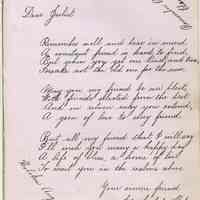 Dear Juliet
Remember well and bear in mind
A constant friend is hard to find
But when you get one kind and true
Forsake not the old one for the new
May you my friend be
With friends selected from the best
And in return may you extend
A gem of love to every friend
But all my friend that I will say
I'll wish you many a happy day
A life of bliss, a home of love
To meet you in the realms above
Your sincere friend